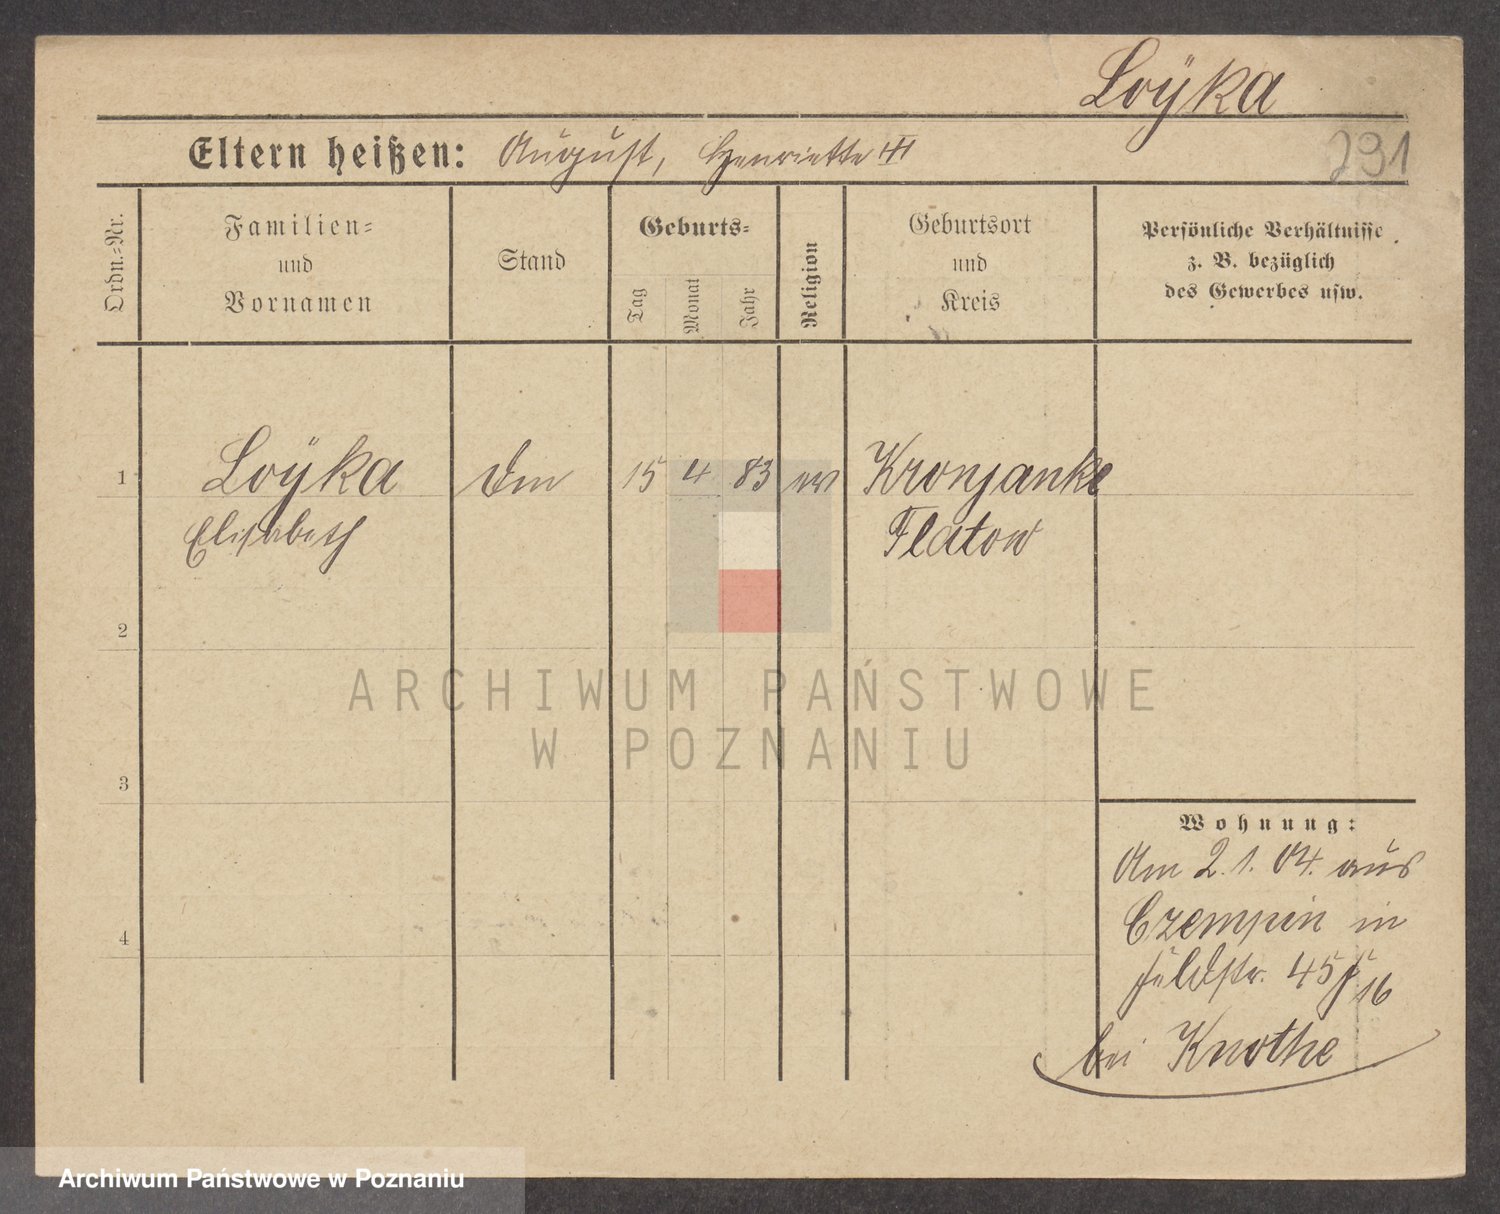 Loÿka
291
Eltern heißen: August, Henriette
Ordn.-Nr.
Familien-
und
Vornamen
Stand
Geburts-
Tag
Monat
Jahr
Religion
Geburtsort
und
Kreis
Persönliche Verhältnisse
z. B. bezüglich
des Gewerbes usw.
1 Loÿka 15 4 83 ev Kronjanke
Elisabeth Flatow
2
3
4
Wohnung:
Am 2.1.04. aus
Czempin in
Feldstr. 45
16
bei Knothe
ARCHIWUM PAŃSTWOWE
W POZNANIU
Archiwum Państwowe w Poznaniu